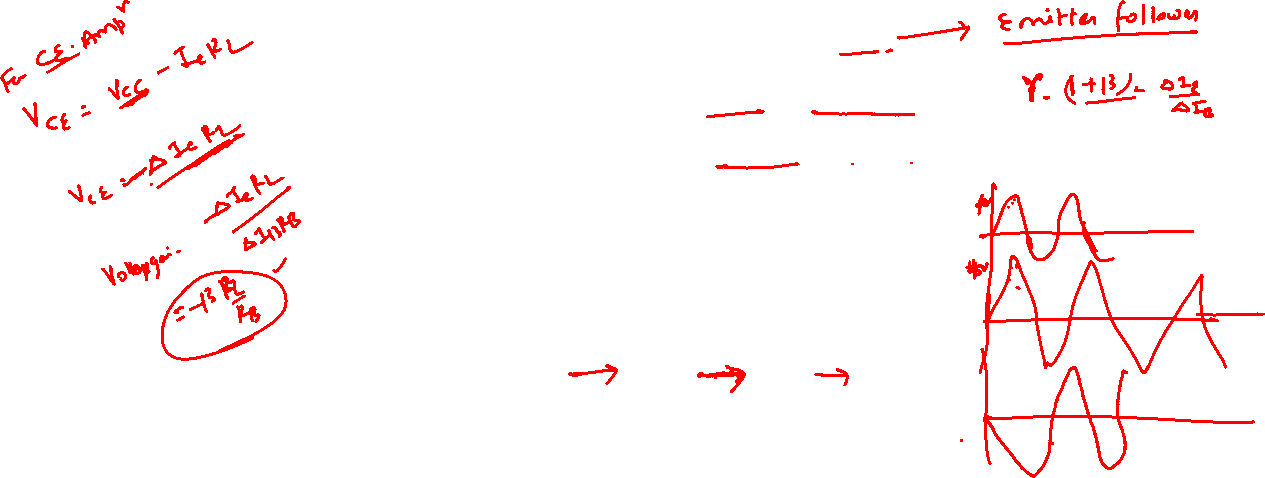 For CE. Ampr
VCE = VCC - IcRL
VCE = -ΔIcRL
Voltage gain. ΔIcRL
ΔIBRB
= -β RL
RB
Emitter follower
γ = (1+β) = ΔIE
ΔIB